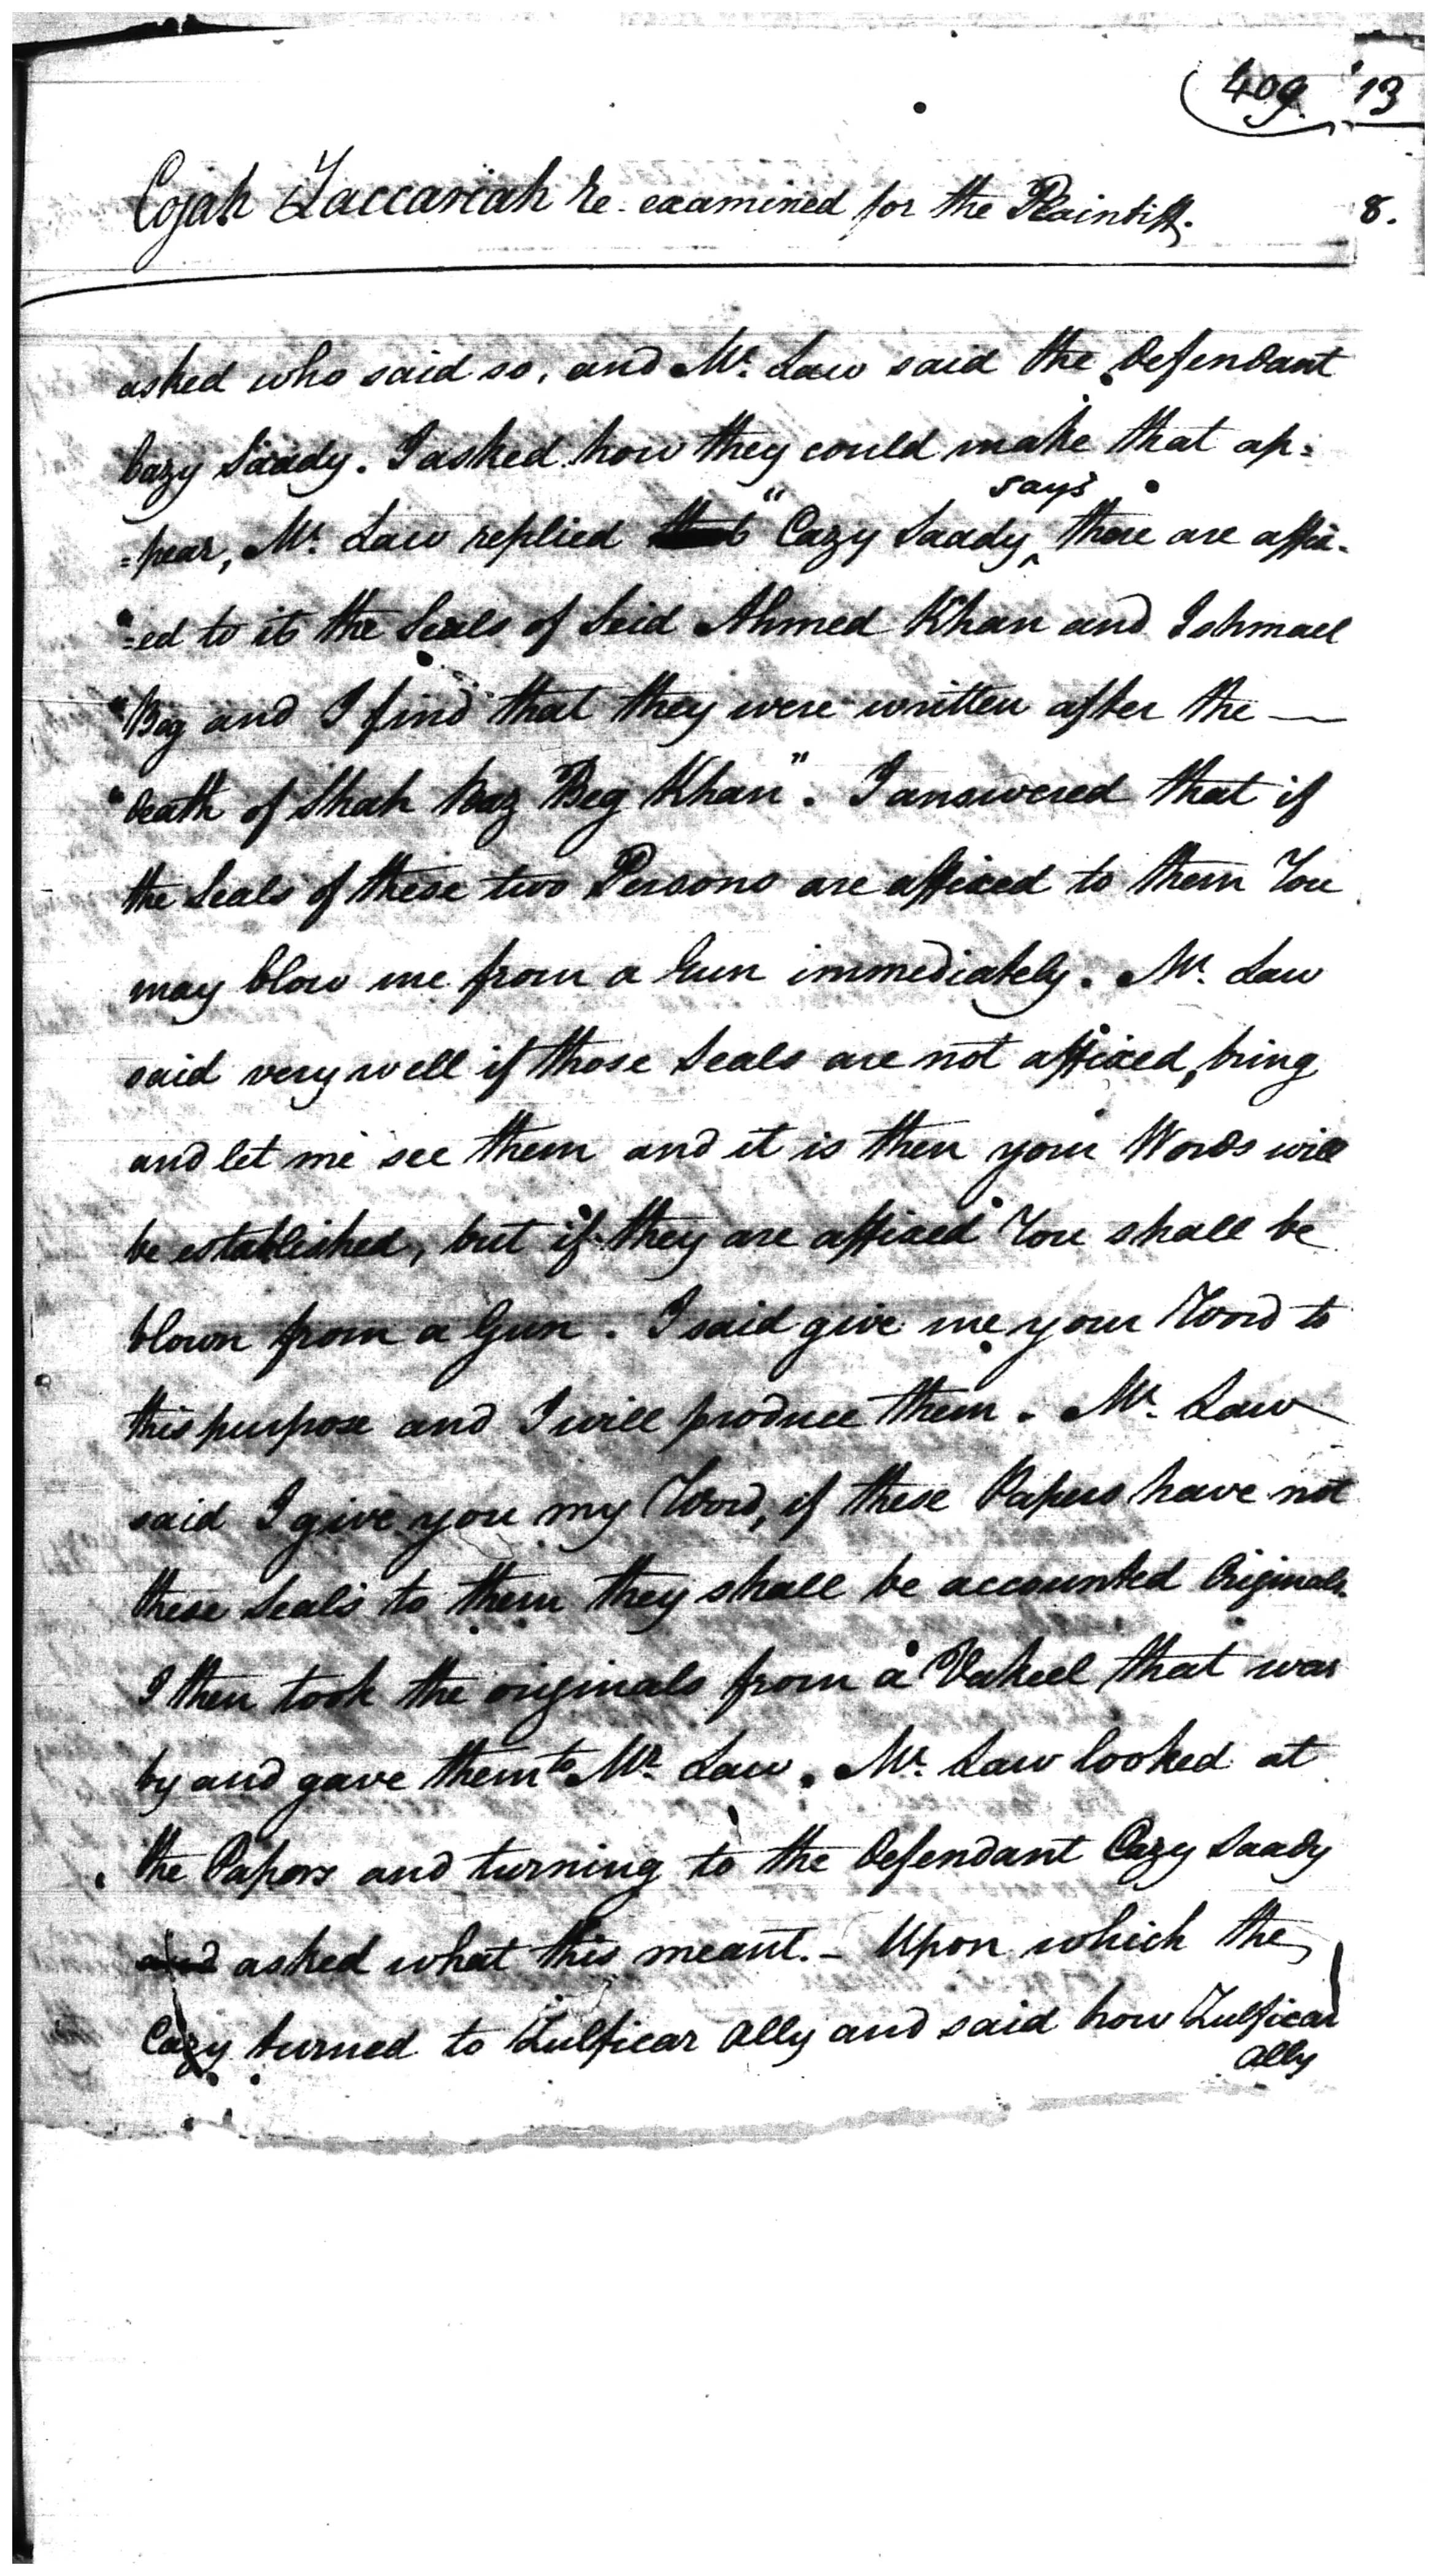 409. 13
Cojah Zaccariah re-examined for the Plaintiff. 8.
asked who said so, and Mr. Law said the Defendant
Cazy Saady. I asked how they could make that ap=
=pear, Mr. Law replied that "Cazy Saady ^says there are affix-
"=ed to it the Seals of Seid Ahmed Khan and Ishmael
"Beg and I find that they were written after the —
"death of Shah Baz Beg Khan". I answered that if
the Seals of these two Persons are affixed to them You
may blow me from a Gun immediately. Mr. Law
said very well if those Seals are not affixed, bring
and let me see them and it is then your Words will
be established, but if they are affixed You shall be
blown from a Gun. I said give me your Word to
this purpose and I will produce them. Mr. Law
said I give you my Word, if these Papers have not
these Seals to them they shall be accounted Originals.
I then took the originals from a Vakeel that was
by and gave them to Mr. Law. Mr. Law looked at
the Papers and turning to the Defendant Cazy Saady
and asked what this meant. - Upon which the
Cazy turned to Zulficar Ally and said how Zulficar
Ally